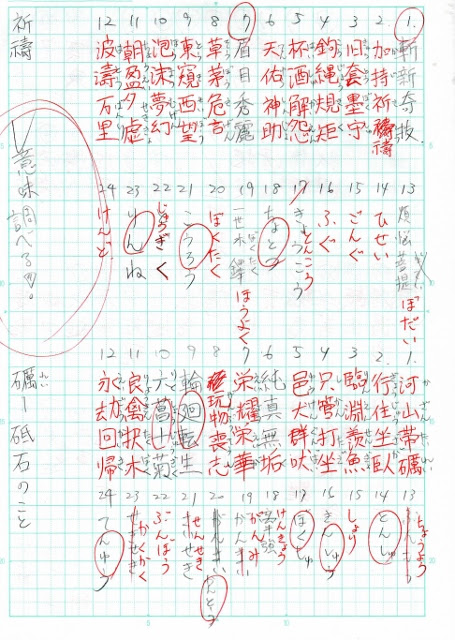 1. 斬新奇抜
2. 加持祈禱
3 旧套墨守
4 鉤縄規矩
5 杯酒解怨
6 天佑神助
7 眉目秀麗
8 草茅危言
9 東窺西望
10 泡沫夢幻
11 朝盈夕虚
12 波濤万里
祈禱
13 煩悩菩提 ぼだい
14 ひせい
15 ごんぐ
16 ふぐ
17 とんこう
18 ちょとつ
19 一世木鐸 ほうよく
20 ぼくたく
21 こうろう
22 じょうぎく
23 りんね
24 けんど
意味調べる
1. 河山帯礪
2. 行住坐臥
3 臨淵羨魚
4 只管打坐
5 邑犬群吠
6 純真無垢
7 栄耀栄華
8 玩物喪志
9 輪廻転生
10 六菖十菊
11 良禽択木
12 永劫回帰
礪ー砥石のこと
13 ちょうよう
14 とんしゅ
15 しょり
16 きんしゅう
17 ほくしゅ
18 けんきょう
19 がんみ
20
21 せんせき
22 ぶんぽう
23 かくかく
24 てんゆう